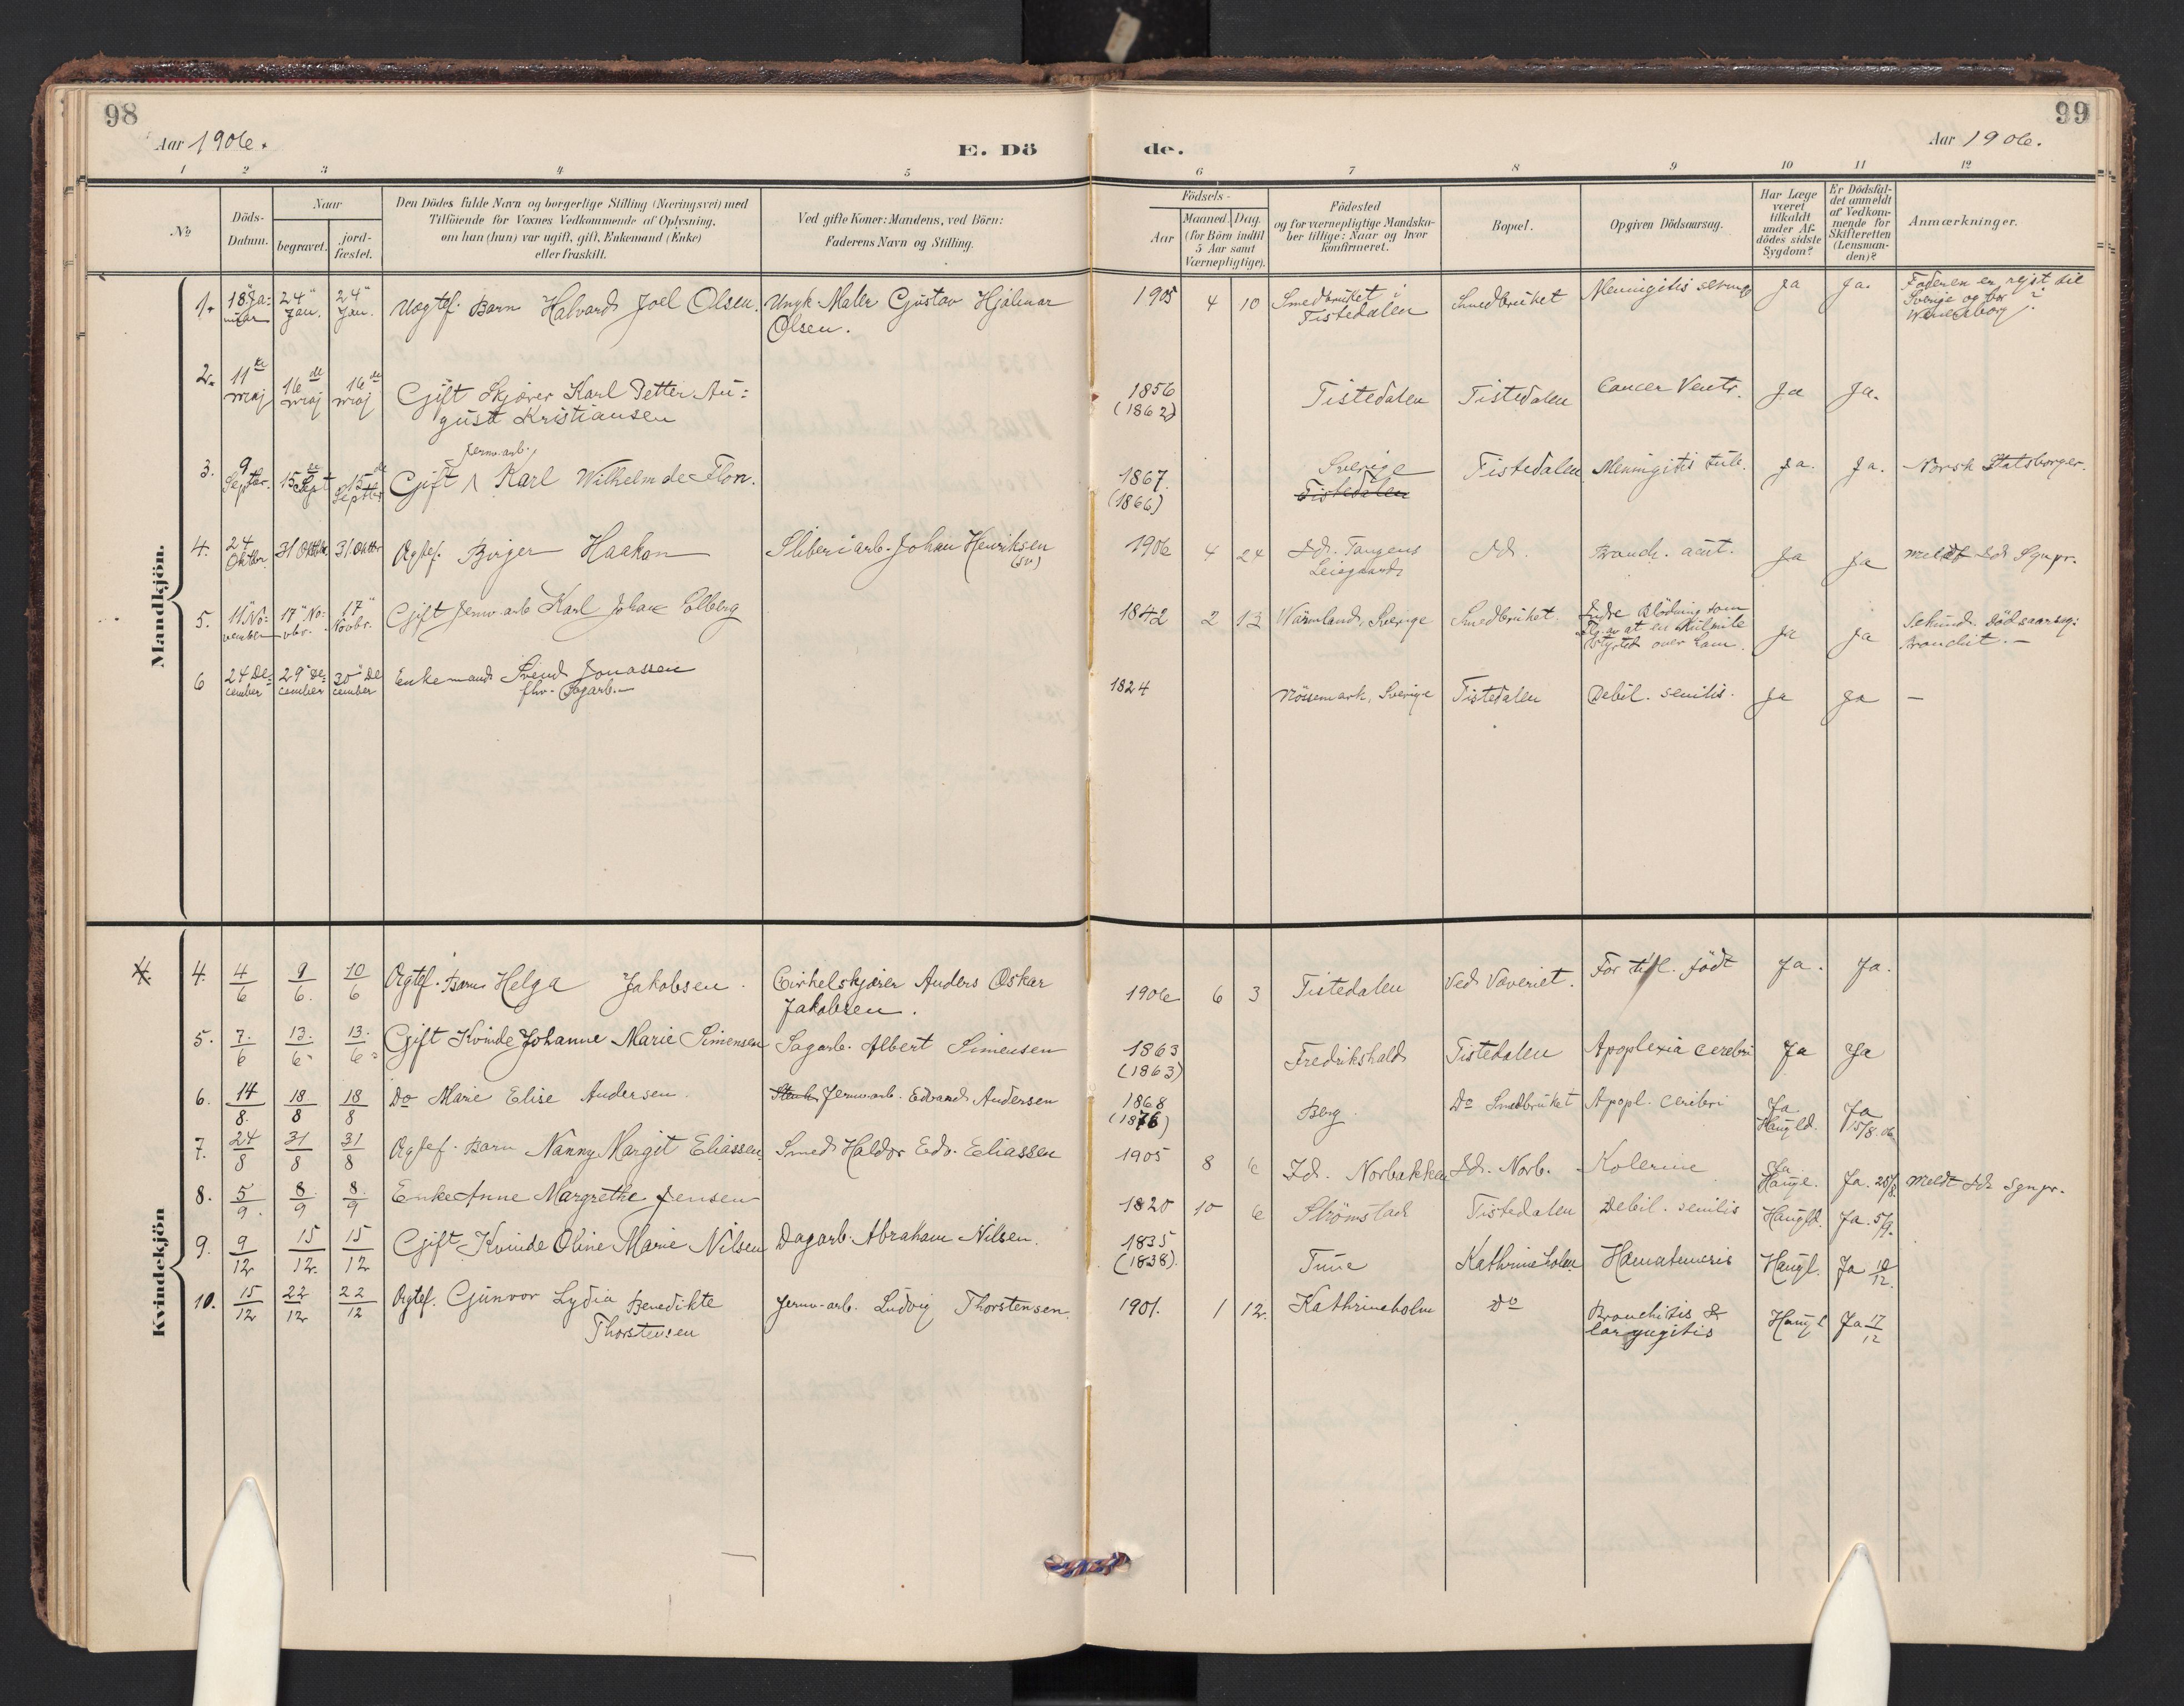 98
99
Aar 1906.
E. Dö
de.
Aar 1906.
1 2 3 4 5 6 7 8 9 10 11 12
No
Döds-
Datum.
Naar
begravet.
jord-
fæstet.
Den Dödes fulde Navn og borgerlige Stilling (Næringsvei) med
Tilföiende for Voxnes Vedkommende af Oplysning,
om han (hun) var ugift, gift, Enkemand (Enke)
eller fraskilt.
Ved gifte Koner: Mandens, ved Börn:
Faderens Navn og Stilling.
Födsels-
Aar
Maaned. Dag.
(for Börn indtil
5 Aar samt
Værnepligtige).
Födested
og for værnepligtige Mandska-
ber tillige: Naar og hvor
konfirmeret.
Bopæl.
Opgiven Dödsaarsag.
Har Læge
været
tilkaldt
under Af-
dödes sidste
Sygdom?
Er Dödsfal-
det anmeldt
af Vedkom-
mende for
Skifteretten
(Lensman-
den)?
Anmærkninger.
Mandkjön.
1. 18" Ja- 24" 24" Uægtef. Barn Halvard Joel Olsen. Ungk. Maler Gustav Hjalmar 1905 4 10 Smedbruket i Smedbruket Meningitis Ja Ja. Faderen er rejst til
nuar Jan. Jan. Olsen. Tistedalen Sverige og bor i
2. 11te 16de 16de Gift Skjærer Karl Petter Au- 1856 Tistedalen Tistedalen Cancer Ventr. Ja Ja.
maj maj maj gust Kristiansen (1862)
Jernv.arb.
3. 9 15de 15de Gift Karl Wilhelm de Flon. 1867 Sverige Tistedalen Meningitis tub. Ja. Ja. Norsk Statsborger.
Septbr. Sept Septbr (1866) Tistedalen
4. 24 31 Oktbr. 31 Oktbr Ægtef. Birger Haakon Sliberiarb. Johan Henriksen 1906 4 24 Id. Tangens Id. Bronch. acut. Ja Ja meldt Id Sgnpr.
Oktbr. (sv) Leiegaard
5. 11" No- 17" No- 17" Gift Jernv.arb Karl Johan Solberg 1842 2 13 Wärmland, Sverige Smedbruket. Indre Blödning som Ja Ja Sekund. Dödsaarsag:
vember vbr. Novbr. Flg. av at en Kulmile
styrted over ham. Bronchit. —
6 24 De- 29" De- 30" De Enkemand Svend Jonassen 1824 Nössemark, Sverige Tistedalen Debil. senilis. Ja Ja —
cember cember cember fhv. Sagarb. —
Kvindekjön
4. 4. 4/6 9/6. 10/6 Ægtef. Barn Helga Jakobsen. Cirkelskjærer Anders Oskar 1906 6 3 Tistedalen Ved Væveriet. For tidl. födt Ja. Ja.
Jakobsen.
5. 7./6 13./6 13./6 Gift Kvinde Johanne Marie Simensen Sagarb. Albert Simensen 1863 Fredrikshald Tistedalen Apoplexia cerebri Ja Ja
(1863)
6. 14/8. 18/8 18/8 Do Marie Elise Andersen. Jernv.arb. Edvard Andersen 1868 Berg Do Smedbruket Apopl. cerebri Ja Ja
(1876) Haugld. 15/8.06
7. 24/8 31/8 31/8 Ægtef. Barn Nanny Margit Eliassen Smed Haldor Edv. Eliassen 1905 8 6 Id. Norbakken Id. Norb. Kolerine Ja Ja. 28/8. Meldt Id Sgnpr.
Haugl.
8. 5/9. 8/9 8/9 Enke Anne Margrethe Jensen 1820 10 6 Strömstad Tistedalen Debil. senilis Haugld. Ja. 5/9.
9. 9/12 15/12. 15/12 Gift Kvinde Oline Marie Nilsen Dagarb. Abraham Nilsen. 1835 Tune Kathrineholm Hæmatemesis Haugl. Ja 10/12.
(1838).
10. 15/12 22/12 22/12 Ægtef. Gunvor Lydia Benedikte Jernv-arb. Ludvig Thorstensen. 1901. 1 12. Kathrineholm Do Bronchitis & Haugl Ja 17/12
Thorstensen laryngitis